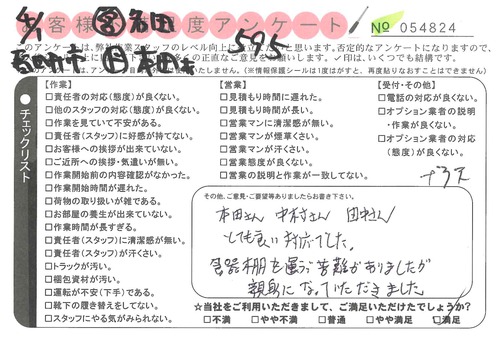 お客様満足度アンケート
No 054824
4/1
595
このアンケートは、弊社作業スタッフのレベル向上に
と思います。否定的なアンケートになりますので、
正直なご意見をお願いします。✓印は、いくつでも結構です。
(※情報保護シールは1度はがすと、再度貼りなおすことはできません)
チェックリスト
【作業】
□責任者の対応(態度)が良くない。
□他のスタッフの対応(態度)が良くない。
□作業を見ていて不安がある。
□責任者(スタッフ)に好感が持てない。
□お客様への挨拶が出来ていない。
□ご近所への挨拶・気遣いが無い。
□作業開始前の内容確認がなかった。
□作業開始時間が遅れた。
□荷物の取り扱いが雑である。
□お部屋の養生が出来ていない。
□作業時間が長すぎる。
□責任者(スタッフ)に清潔感が無い。
□責任者(スタッフ)が汗くさい。
□トラックが汚い。
□梱包資材が汚い。
□運転が不安(下手)である。
□靴下の履き替えをしてない。
□スタッフにやる気がみられない。
【営業】
□見積もり時間に遅れた。
□見積もり時間が長い。
□営業マンに清潔感が無い。
□営業マンが煙草くさい。
□営業マンが汗くさい。
□営業態度が良くない。
□営業の説明と作業が一致してない。
【受付・その他】
□電話の対応が良くない。
□オプション業者の説明
・作業が良くない。
□オプション業者の対応
(態度)が良くない。
その他、ご意見・ご要望等ありましたらお書き下さい。
本田さん 中村さん 田中さん
とても良い対応でした。
食器棚を運ぶ苦難がありましたが
親身になっていただきました。
☆当社をご利用いただきまして、ご満足いただけたでしょうか?
□不満 □やや不満 □普通 □やや満足 □満足